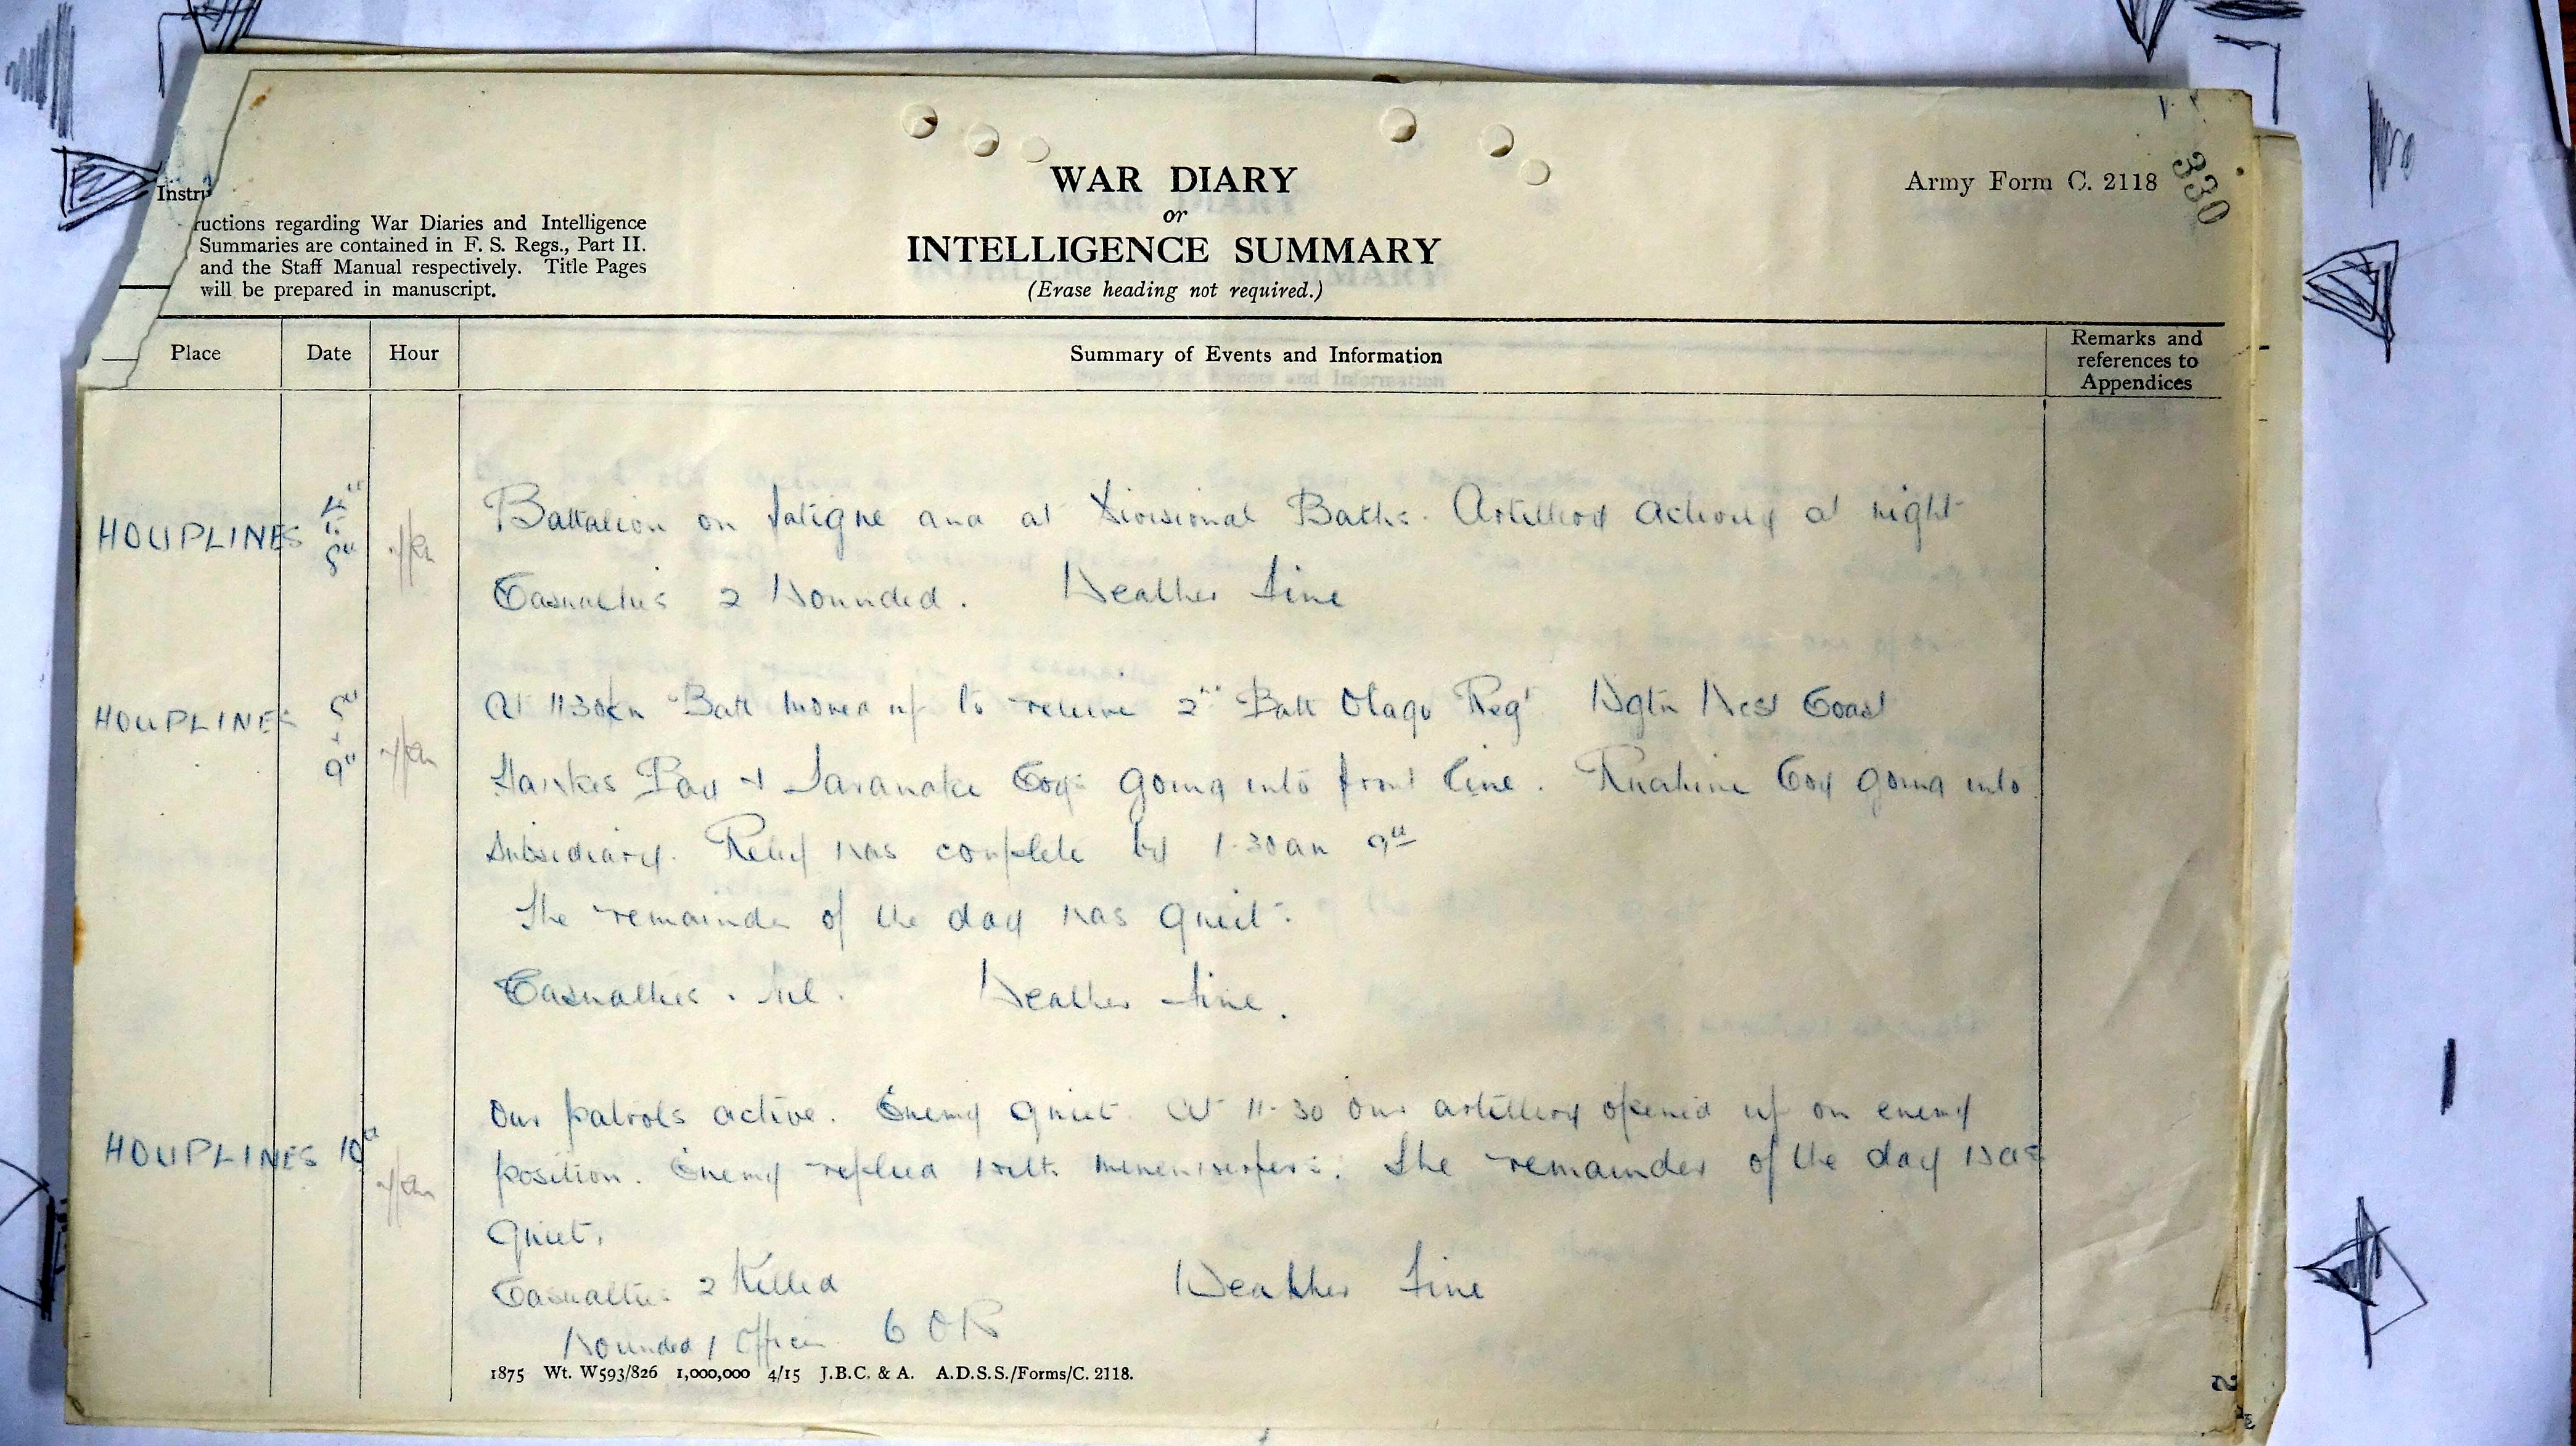 Instru
ructions regarding War Diaries and Intelligence
Summaries are contained in F. S. Regs., Part II.
and the Staff Manual respectively. Title Pages
will be prepared in manuscript.
WAR DIARY
or
INTELLIGENCE SUMMARY
(Erase heading not required.)
Army Form C. 2118
330
Place Date Hour Summary of Events and Information Remarks and references to Appendices
HOUPLINES 8th Battalion on fatigue and at Divisional Baths. Artillery activity at night
Casualties 2 Wounded. Weather Fine
HOUPLINES 9th At 11.30pm Batt moved up to relieve 2nd Batt Otago Regt. Wgtn West Coast
Hawkes Bay + Taranaki Coys going into front line. Ruahine Coy going into
Subsidiary. Relief was complete by 1.30am 9th
The remainder of the day was quiet.
Casualties. Nil. Weather Fine.
HOUPLINES 10th Our patrols active. Enemy quiet. At 11.30 our artillery opened up on enemy
position. Enemy replied with minenwerfers. The remainder of the day was
Quiet.
Casualties 2 Killed Weather Fine
Wounded 1 Officer 6 OR
1875 Wt. W593/826 1,000,000 4/15 J.B.C. & A. A.D.S.S./Forms/C. 2118.